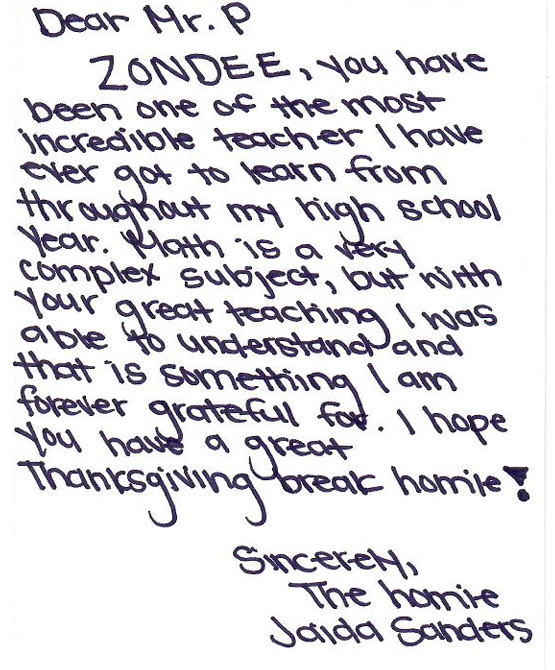 Dear Mr. P
ZONDEE, you have
been one of the most
incredible teacher I have
ever got to learn from
throughout my high school
year. Math is a very
complex subject, but with
your great teaching I was
able to understand and
that is something I am
forever grateful for. I hope
you have a great
Thanksgiving break homie!
Sincerely,
The homie
Jaida Sanders